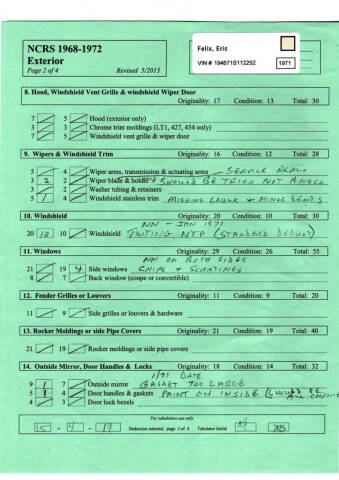 NCRS 1968-1972
Exterior
Page 2 of 4 Revised 5/2013
Felix, Eric
VIN # 194671S112252 1971
8. Hood, Windshield Vent Grille & windshield Wiper Door
Originality: 17 Condition: 13 Total: 30
7 5 Hood (exterior only)
3 3 Chrome trim moldings (LT1, 427, 454 only)
7 5 Windshield vent grille & wiper door
9. Wipers & Windshield Trim Originality: 16 Condition: 12 Total: 28
5 4 Wiper arms, transmission & actuating arms SERVICE
3 2 2 Wiper blade & holder SHOULD BE TRICO NOT ANSCO
3 2 Washer tubing & retainers
5 1 4 Windshield stainless trim MISSING CAULK & MINOR DENTS
10. Windshield Originality: 20 Condition: 10 Total: 30
NN - JAN 1971
20 10 10 Windshield TINTING NTP (STANDARD DEDUCT)
11. Windows Originality: 29 Condition: 26 Total: 55
NN ON BOTH SIDES
21 19 4 Side windows CHIPS & SCRATCHES
8 7 Back window (coupe or convertible)
12. Fender Grilles or Louvers Originality: 11 Condition: 9 Total: 20
11 9 Side grilles or louvers & hardware
13. Rocker Moldings or side Pipe Covers Originality: 21 Condition: 19 Total: 40
21 19 Rocker moldings or side pipe covers
14. Outside Mirror, Door Handles & Locks Originality: 18 Condition: 14 Total: 32
1/71 DATE
9 1 7 Outside mirror GASKET TOO LARGE
5 1 4 Door handles & gaskets PAINT ON INSIDE (SHOULD BE
4 3 Door lock bezels
For tabulation use only
15 - 4 - 19 Deduction subtotal, page 2 of 4 Tabulator Initial